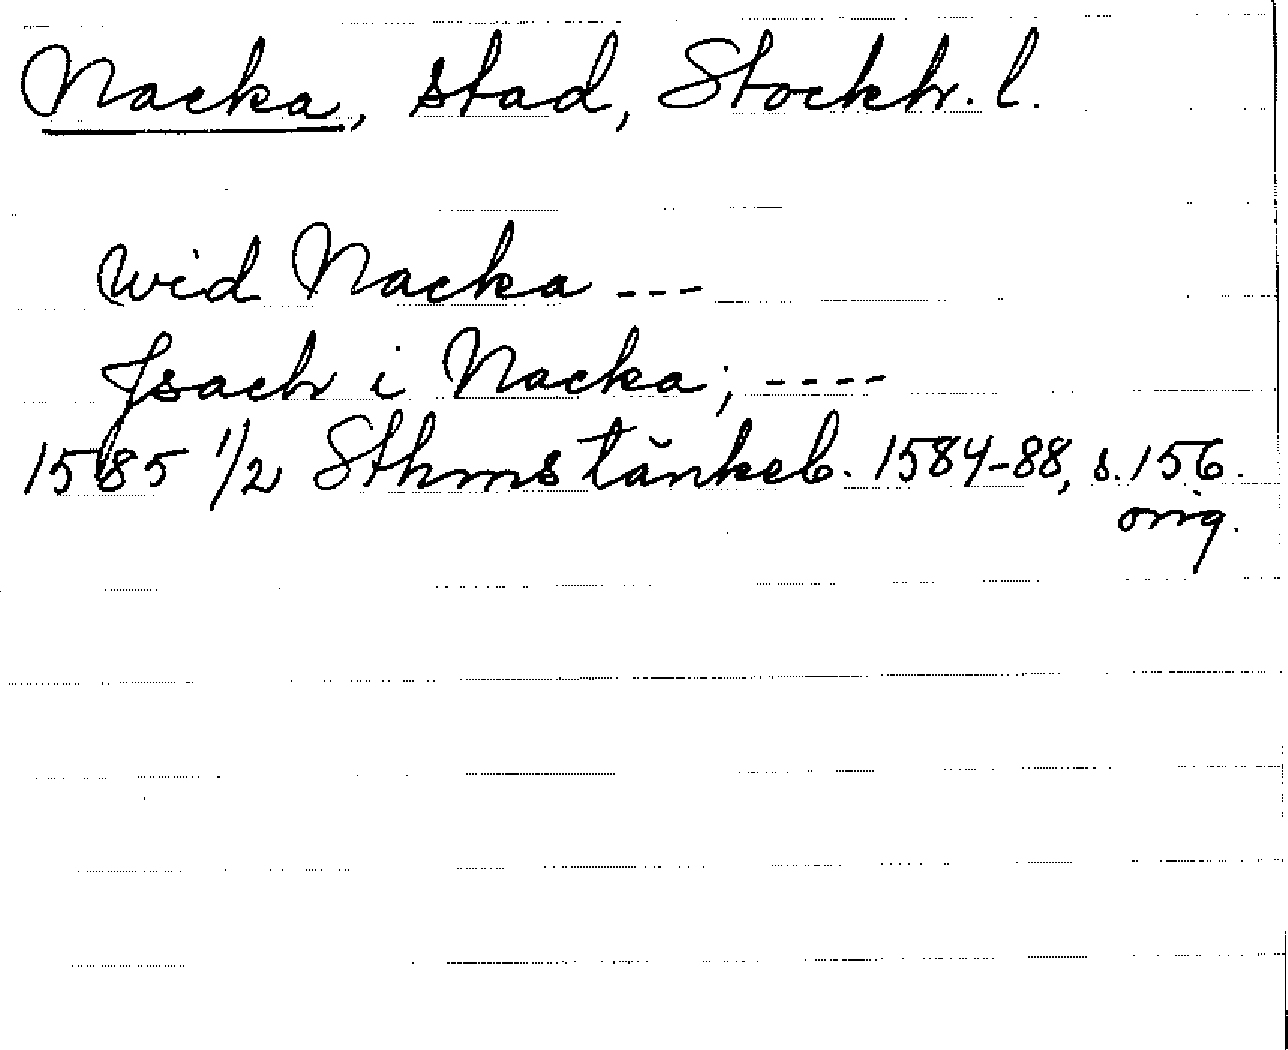 Nacka, stad, Stockh. l.
wid Nacka ---
Jsach i Nacka; ----
1585 1/2 Sthms tänkeb. 1584-88, s. 156.
orig.